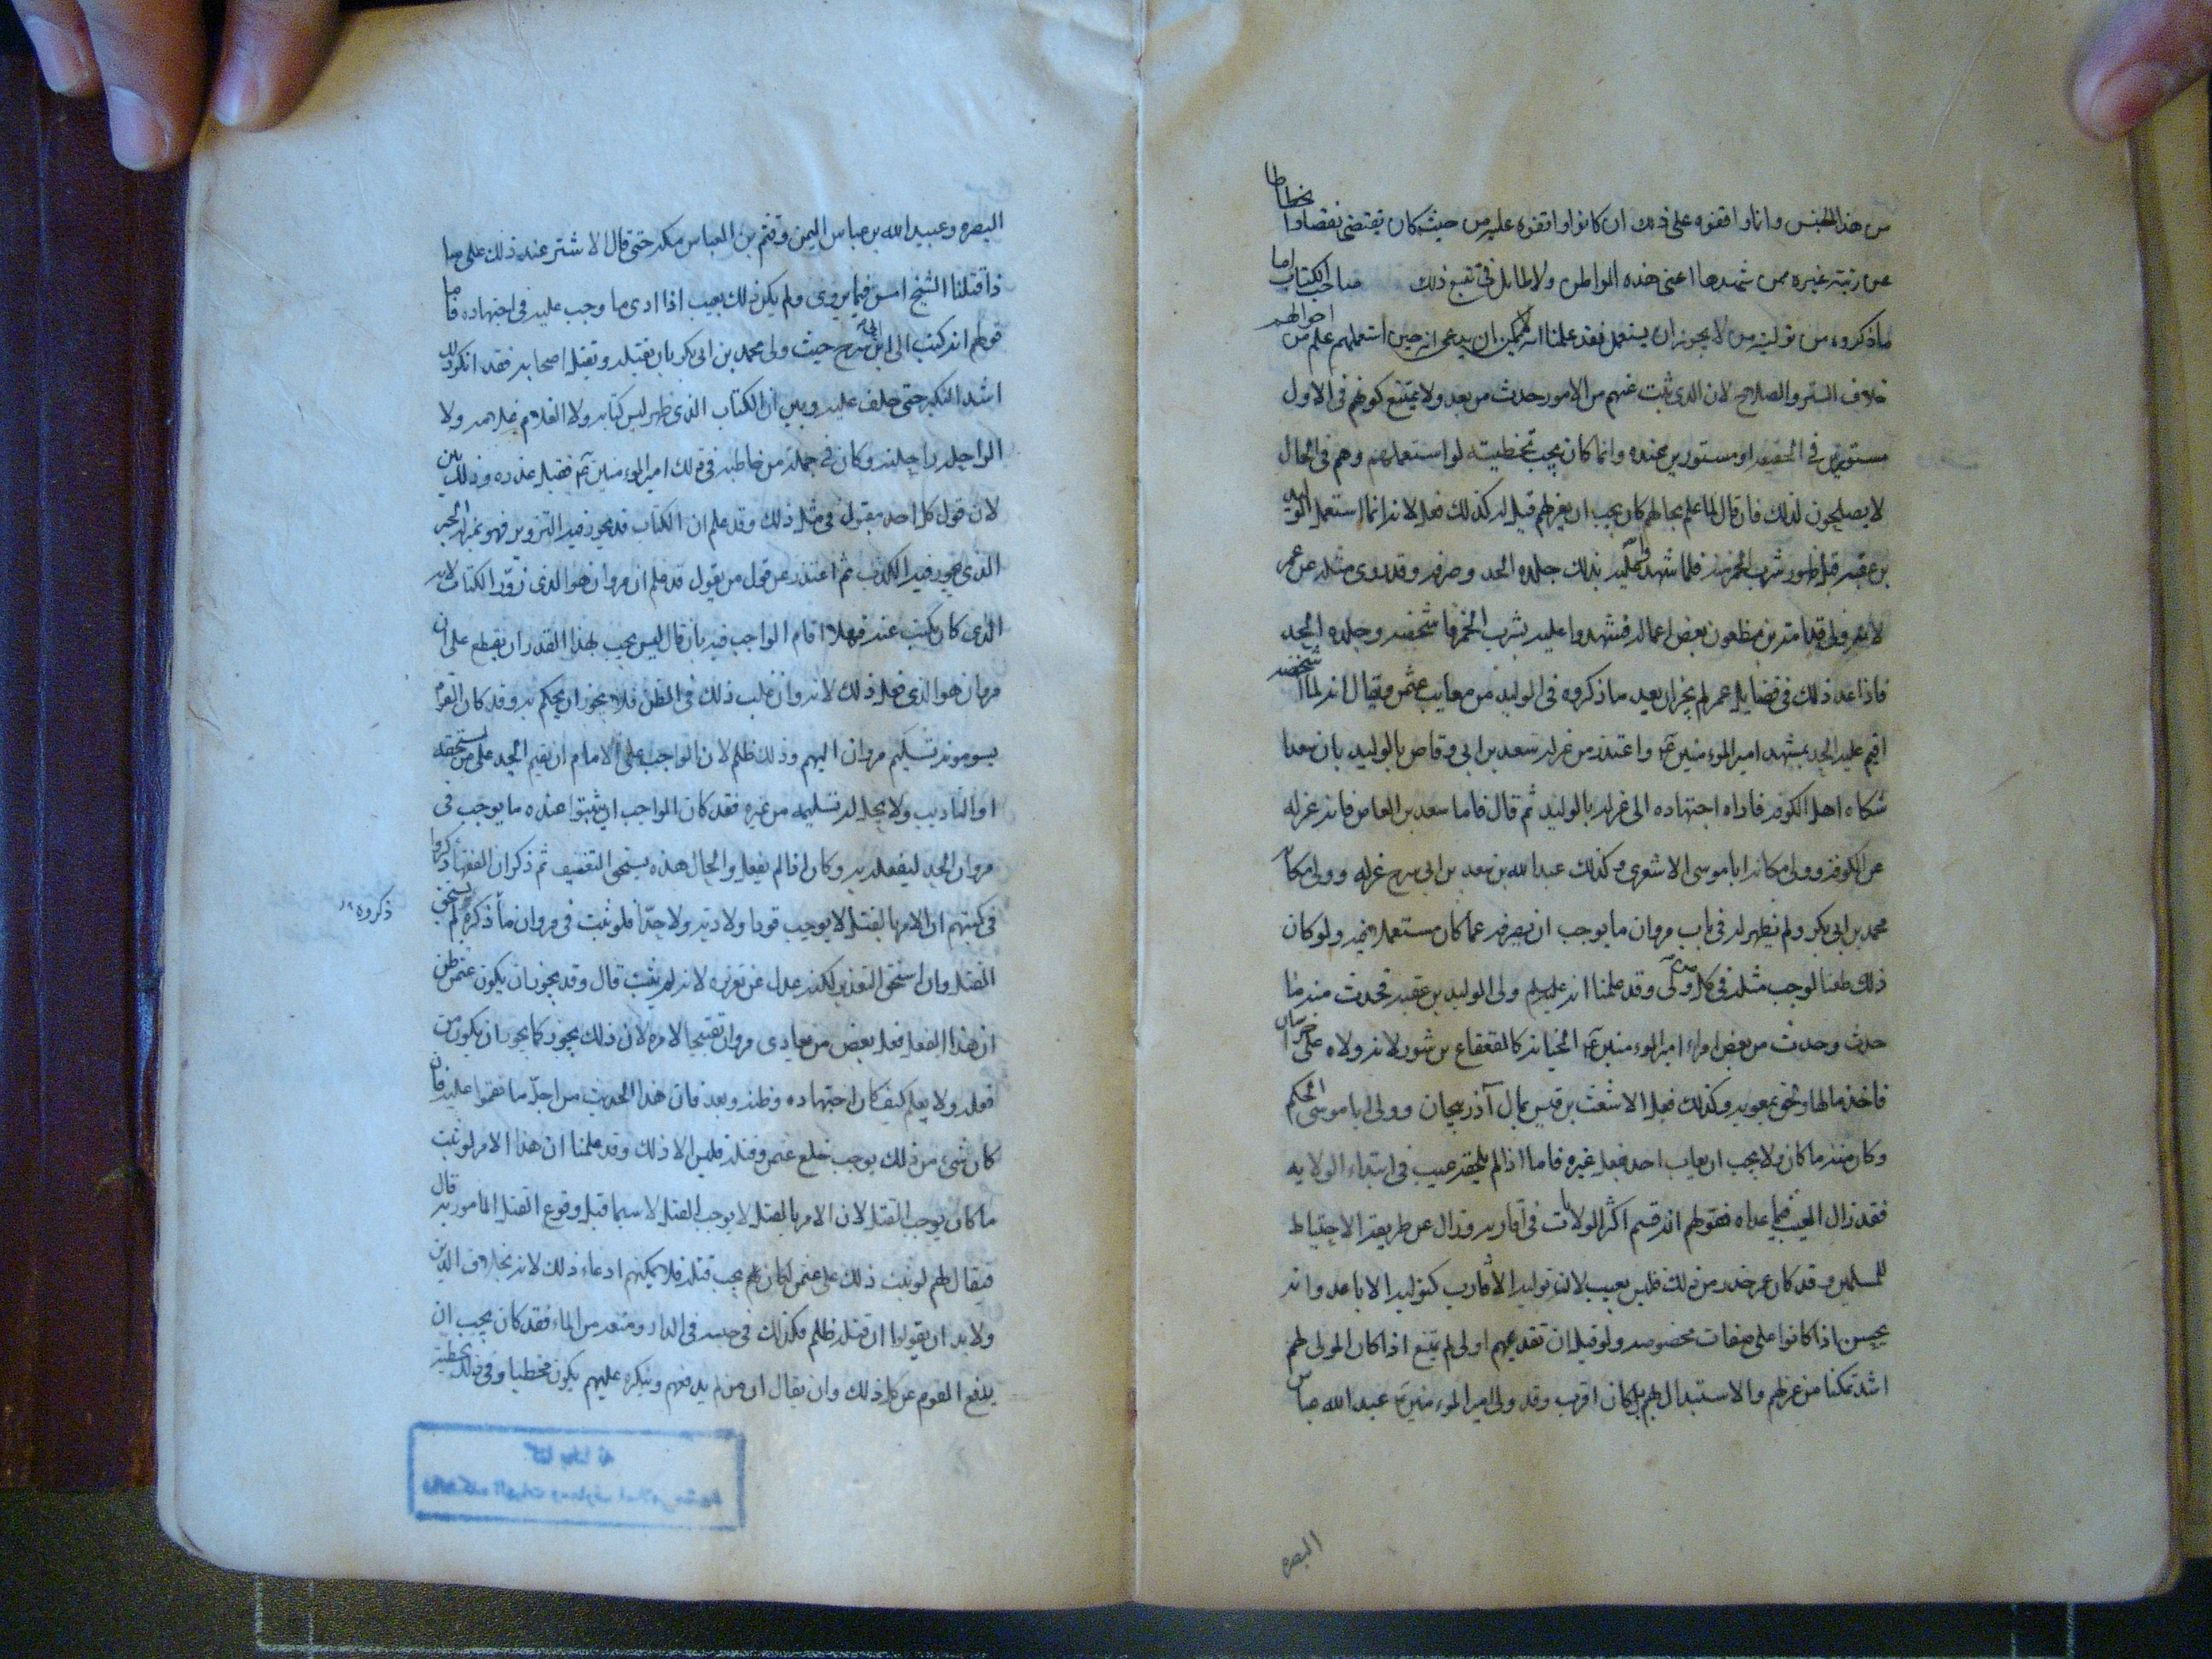 من هذا الجنس وانا واقفوه على ذلك ان كانوا واقفوه عليه من حيث كان يقتضى نقصا او انحطاطا
عن رتبة غيره ممن شهدها اعنى هذه المواطن ولا طايل فى تتبع ذلك صاحب الكتاب اما
ما ذكروه من توليته من لا يجوز ان يستعمل فقد علمنا انه لا يمكن ان يدعى انه حين استعملهم علم من احوالهم
خلاف الستر والصلاح لان الذى ثبت عنهم من الامور حدث من بعد ولا يمتنع كونهم فى الاول
مستورين فى الحقيقه او مستورين عنده وانما كان يجب تخطيته لو استعملهم وهم فى الحال
لا يصلحون لذلك فان قال لما علم بحالهم كان يجب ان يعزلهم قيل له كذلك فعل لانه انما استعمل الوليد
بن عقبه قبل ظهور شرب الخمر منه فلما شهدوا عليه بذلك جلده الحد وصرفه وقد روى مثله عن عمر
لانه ولى قدامة بن مظعون بعض اعماله فشهدوا عليه بشرب الخمر فاشخصه وجلده الحد
فاذا عد ذلك فى فضايل عمر لم يجز ان يعد ما ذكروه فى الوليد من معايب عثمن ويقال انه لما اشخصه
اقيم عليه الحد بمشهد امير المومنين ع واعتذر من عزله سعد بن ابى وقاص بالوليد بان سعدا
شكاه اهل الكوفه فاداه اجتهاده الى عزله بالوليد ثم قال فاما سعد بن العاص فانه عزله
عن الكوفه وولى مكانه ابا موسى الاشعرى وكذلك عبد الله بن سعد بن ابى سرح عزله وولى مكانه
محمد بن ابى بكر ولم يظهر له فى باب مروان ما يوجب ان يصرفه عما كان مستعملا فيه ولو كان
ذلك طعنا لوجب مثله فى كل من ولى وقد علمنا انه عليلم ولى الوليد بن عقبه فحدث منه ما
حدث وحدث من بعض امراء امير المومنين ع الخيانه كالقعقاع بن شور لانه ولاه على خراسان
فاخذ مالها ولحق بمعويه وكذلك فعل الاشعث بن قيس بمال آذربيجان وولى ابا موسى الحكم
وكان منه ما كان ولا يجب ان يعاب احد بفعل غيره فاما اذا لم يلحقه عيب فى ابتداء الولايه
فقد زال العيب فيما عداه فقولهم انه قسم اكثر الولايات فى اقاربه وزال عن طريقه الاحتياط
للمسلمين وقد كان عمر حذره من ذلك فليس بعيب لان توليه الاقارب كتوليه الاباعد وانه
يحسن اذا كانوا على صفات مخصوصه ولو قيل ان تقديمهم اولى لم يمتنع اذا كان المولى لهم
اشد تمكنا من عزلهم والاستبدال بهم بل كان اقرب وقد ولى امير المومنين ع عبد الله عباس
البصره
البصره وعبيد الله بن عباس اليمن وقثم بن العباس مكه حتى قال الاشتر عند ذلك على ما
ذا قتلنا الشيخ امس فيما يروى ولم يكن ذلك بعيب اذا ادى ما وجب عليه فى اجتهاده فاما
قولهم انه كتب الى ابن ابى سرح حيث ولى محمد بن ابى بكر بان يقتله ويقتل اصحابه فقد انكر ذلك
اشد النكير حتى حلف عليه وبين ان الكتاب الذى ظهر ليس كتابه ولا الغلام غلامه ولا
الراحله راحلته وكان فى جملة من خاطبه فى ذلك امير المومنين ع فقبل عذره وذلك بين
لان قول كل احد مقبول فى مثل ذلك وقد علم ان الكتاب قد يجوز فيه التزوير فهو بمنزله الخبر
الذى يجوز فيه الكذب ثم اعتذر عن قول من يقول قد علم ان مروان هو الذى زوّر الكتاب لانه
الذى كان يكتب عنه فهلا اقام الواجب فيه بان قال ليس يجب بهذا القدر ان يقطع على ان
مروان هو الذى فعل ذلك لانه وان غلب ذلك فى الظن فلا يجوز ان يحكم به وقد كان القوم
يسومونه تسليم مروان اليهم وذلك ظلم لان الواجب على الامام ان يقيم الحد على من يستحقه
او التاديب ولا يحل له تسليمه من غيره فقد كان الواجب ان يثبتوا عنده ما يوجب فى
مروان الحد ليفعله به وكان اذا لم يفعل والحال هذه يستحق التعنيف ثم ذكر ان الفقهاء ذكروا
فى كتبهم ان الامر بالقتل لا يوجب قودا ولا ديه ولا حدّا فلو ثبت فى مروان ما ذكره لم يستحق
ذكروه
القتل وان استحق التعزير لكنه عدل عن تعزيره لانه لم يثبت قال وقد يجوز ان يكون عثمن ظن
ان هذا الفعل فعل بعض من يعادى مروان تقبيحا لامره لان ذلك يجوز كما يجوز ان يكون من
فعله ولا يعلم كيف كان اجتهاده وظنه وبعد فان هذا الحديث من اجلّ ما نقموا عليه فان
كان شىء من ذلك يوجب خلع عثمن وقتله فليس الا ذلك وقد علمنا ان هذا الامر لو ثبت
ما كان يوجب القتل لان الامر بالقتل لا يوجب القتل لا سيما قبل وقوع القتل المامور به قال
فيقال لهم لو ثبت ذلك على عثمن اكان يجب قتله فلا يمكنهم ادعاء ذلك لانه بخلاف الدين
ولا بد ان يقولوا ان قتله ظلم فكذلك فى حبسه فى الدار ومنعه من الماء فقد كان يجب ان
يدفع القوم عن كل ذلك وان يقال ان من لم يدفعهم وينكره عليهم يكون مخطيا وفى ذلك تخطية